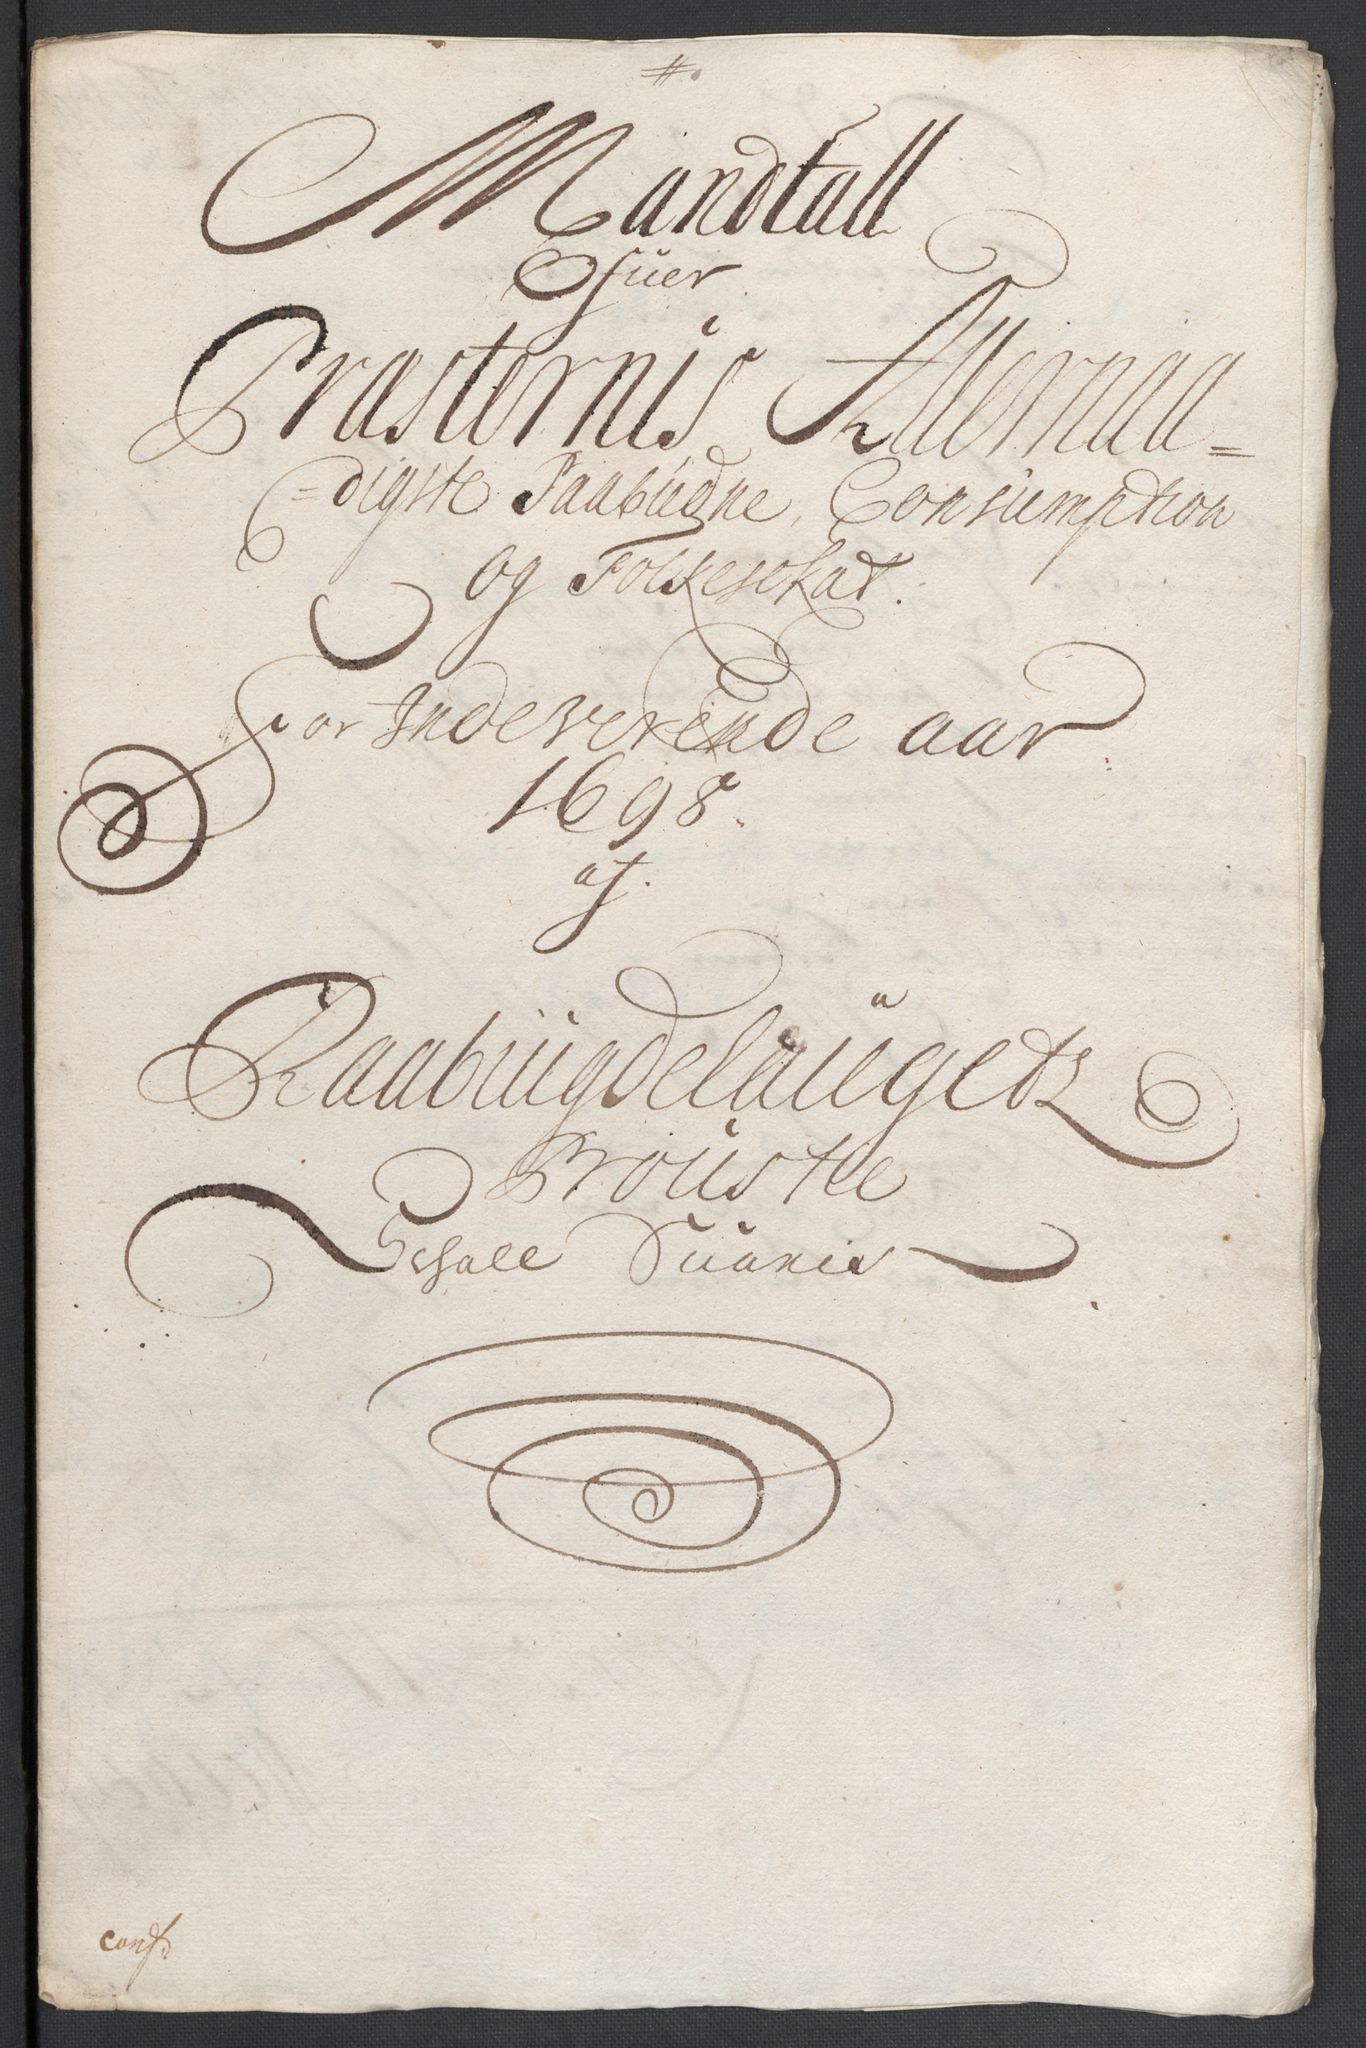 #.
Mandtall
Ofuer
Præsternis Allernaa=
=digste Paabudne, Consumption
og Folkeschat.
For Indeverende aar
1698.
af.
Raabüügdelaugetz
Proustie
Schale
conf.